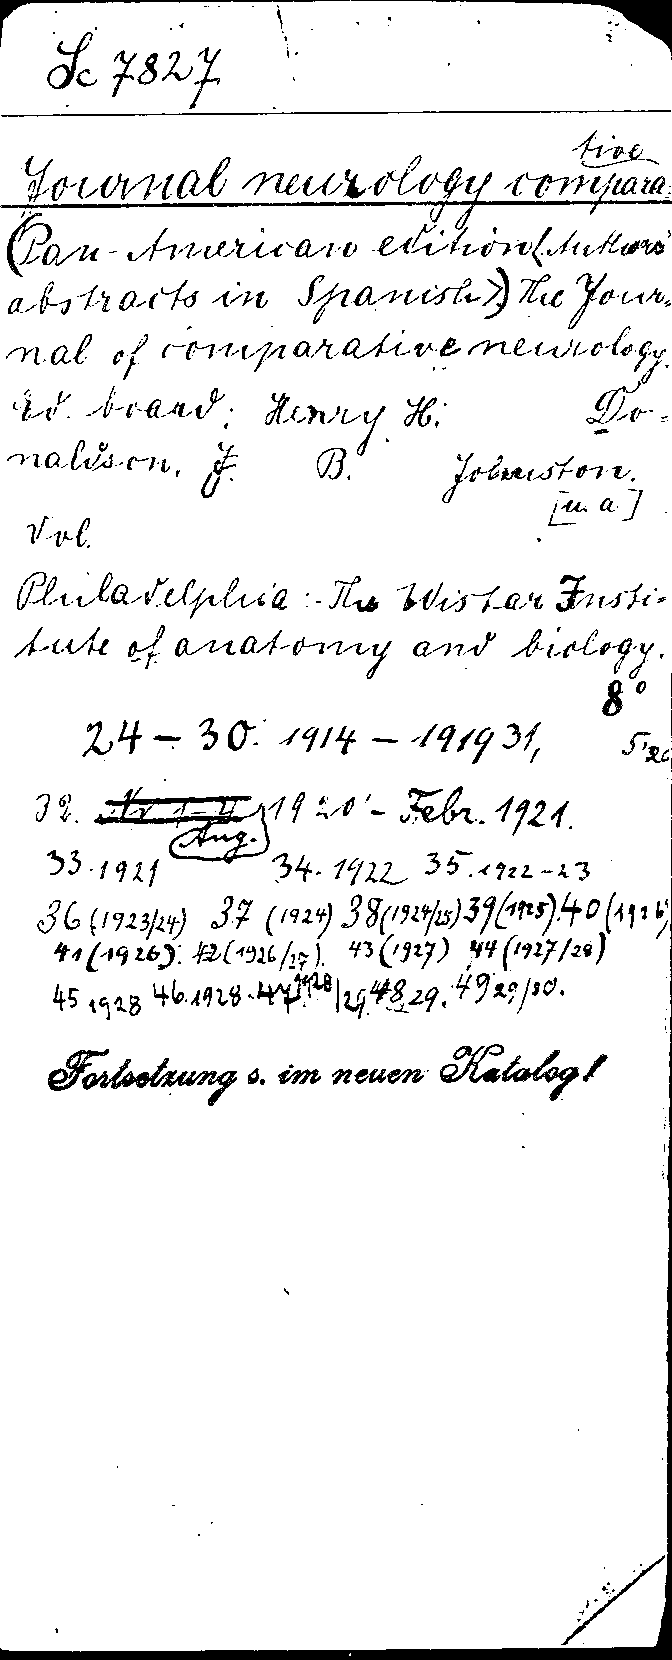 Sc 7827
Journal neurology comparative
(Pan-American edition (Authors'
abstracts in Spanish).) The Jour-
nal of comparative neurology.
Ed. board: Henry H. Do-
naldson, J. B. Johnston.
[u. a]
Vol.
Philadelphia: The Wistar Insti-
tute of anatomy and biology.
8°
24 – 30. 1914 – 1919 31,
32. Nr 1-4 Aug. 1920 - Febr. 1921.
33. 1921 34. 1922 35. 1922-23
36 (1923/24) 37 (1924) 38 (1924/25) 39 (1925). 40 (1926)
41 (1926). 42 (1926/27). 43 (1927) 44 (1927/28)
45 1928 46. 1928. 47 1928/29. 48. 29. 49 29/30.
Fortsetzung s. im neuen Katalog!